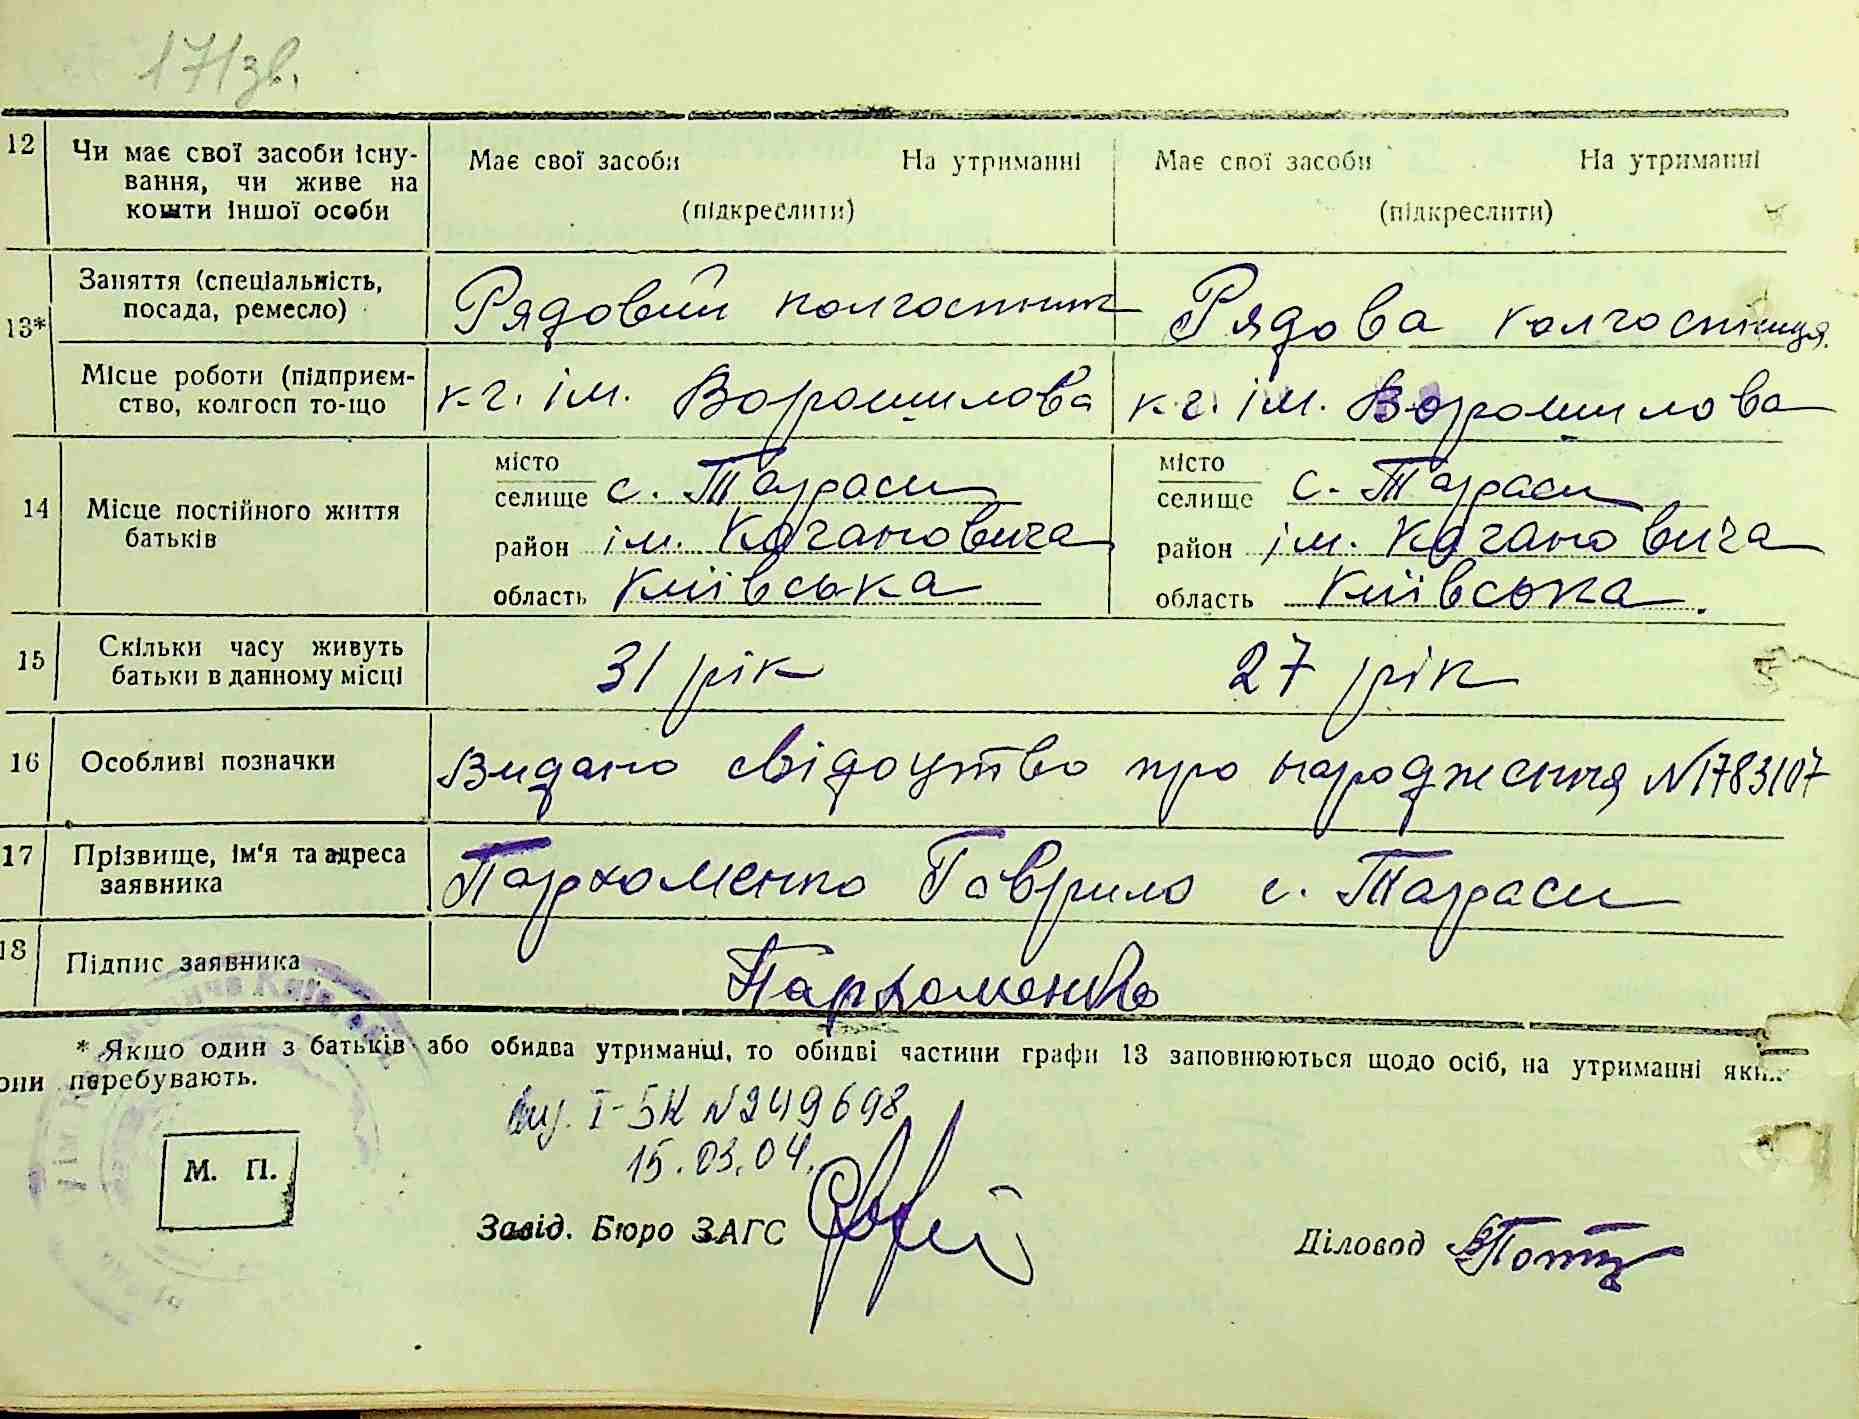 171зв.
12 Чи має свої засоби існу- Має свої засоби На утриманні Має свої засоби На утриманні
вання, чи живе на
кошти іншої особи (підкреслити) (підкреслити)
13* Заняття (спеціальність, Рядовий колгоспник Рядова колгоспниця
посада, ремесло)
Місце роботи (підприєм- кг. ім. Ворошилова кг. ім. Ворошилова
ство, колгосп то-що
14 Місце постійного життя
батьків
місто
селище с. Тараси
район ім. Кагановича
область Київська
місто
селище с. Тараси
район ім. Кагановича
область Київська.
15 Скільки часу живуть 31 рік 27 рік
батьки в данному місці
16 Особливі позначки Видано свідоцтво про народження №1783107
17 Прізвище, ім'я та адреса Пархоменко Гаврило с. Тараси
заявника
18 Підпис заявника Пархоменко
* Якщо один з батьків або обидва утриманці, то обидві частини графи 13 заповнюються щодо осіб, на утриманні яких
вони перебувають.
I-БК №249698
15.03.04.
М. П.
Завід. Бюро ЗАГС
Діловод